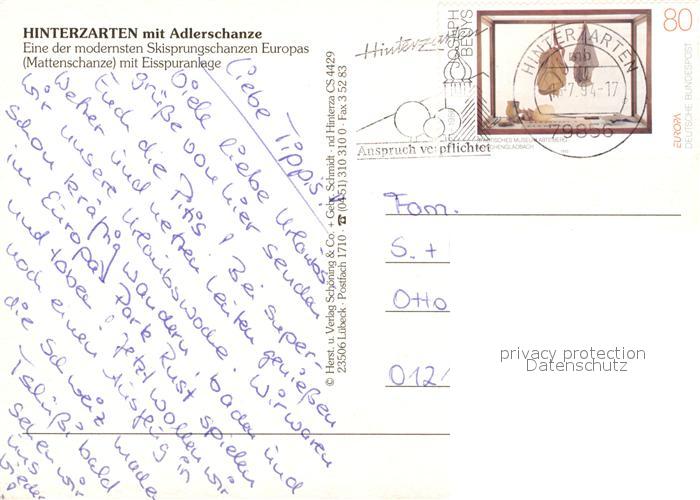 HINTERZARTEN mit Adlerschanze
Eine der modernsten Skisprungschanzen Europas
(Mattenschanze) mit Eisspuranlage
Liebe Tippis!
Viele liebe Urlaubs-
grüße von hier senden
Euch die Pitis! Bei super-
Wetter und netten Leuten genießen
wir unsere Urlaubswoche. Wir waren
schon kräftig wandern, baden und
im Europa Park Rust spielen
und toben! Jetzt wollen wir
noch einen Ausflug in
die Schweiz machen
Tschüßi bald
sehen wir
uns
wieder
© Herst. u. Verlag Schöning & Co. + Gebr. Schmidt · nd Hinterza CS 4429
23506 Lübeck · Postfach 1710 · ☎ (04 51) 310 310 0 · Fax 3 52 83
Hinterzarten
Anspruch verpflichtet
HINTERZARTEN
mb
7.94-17
79856
JOSEPH
BEUYS
80
DEUTSCHE BUNDESPOST
EUROPA
Fam.
S. +
Otto
012
privacy protection
Datenschutz